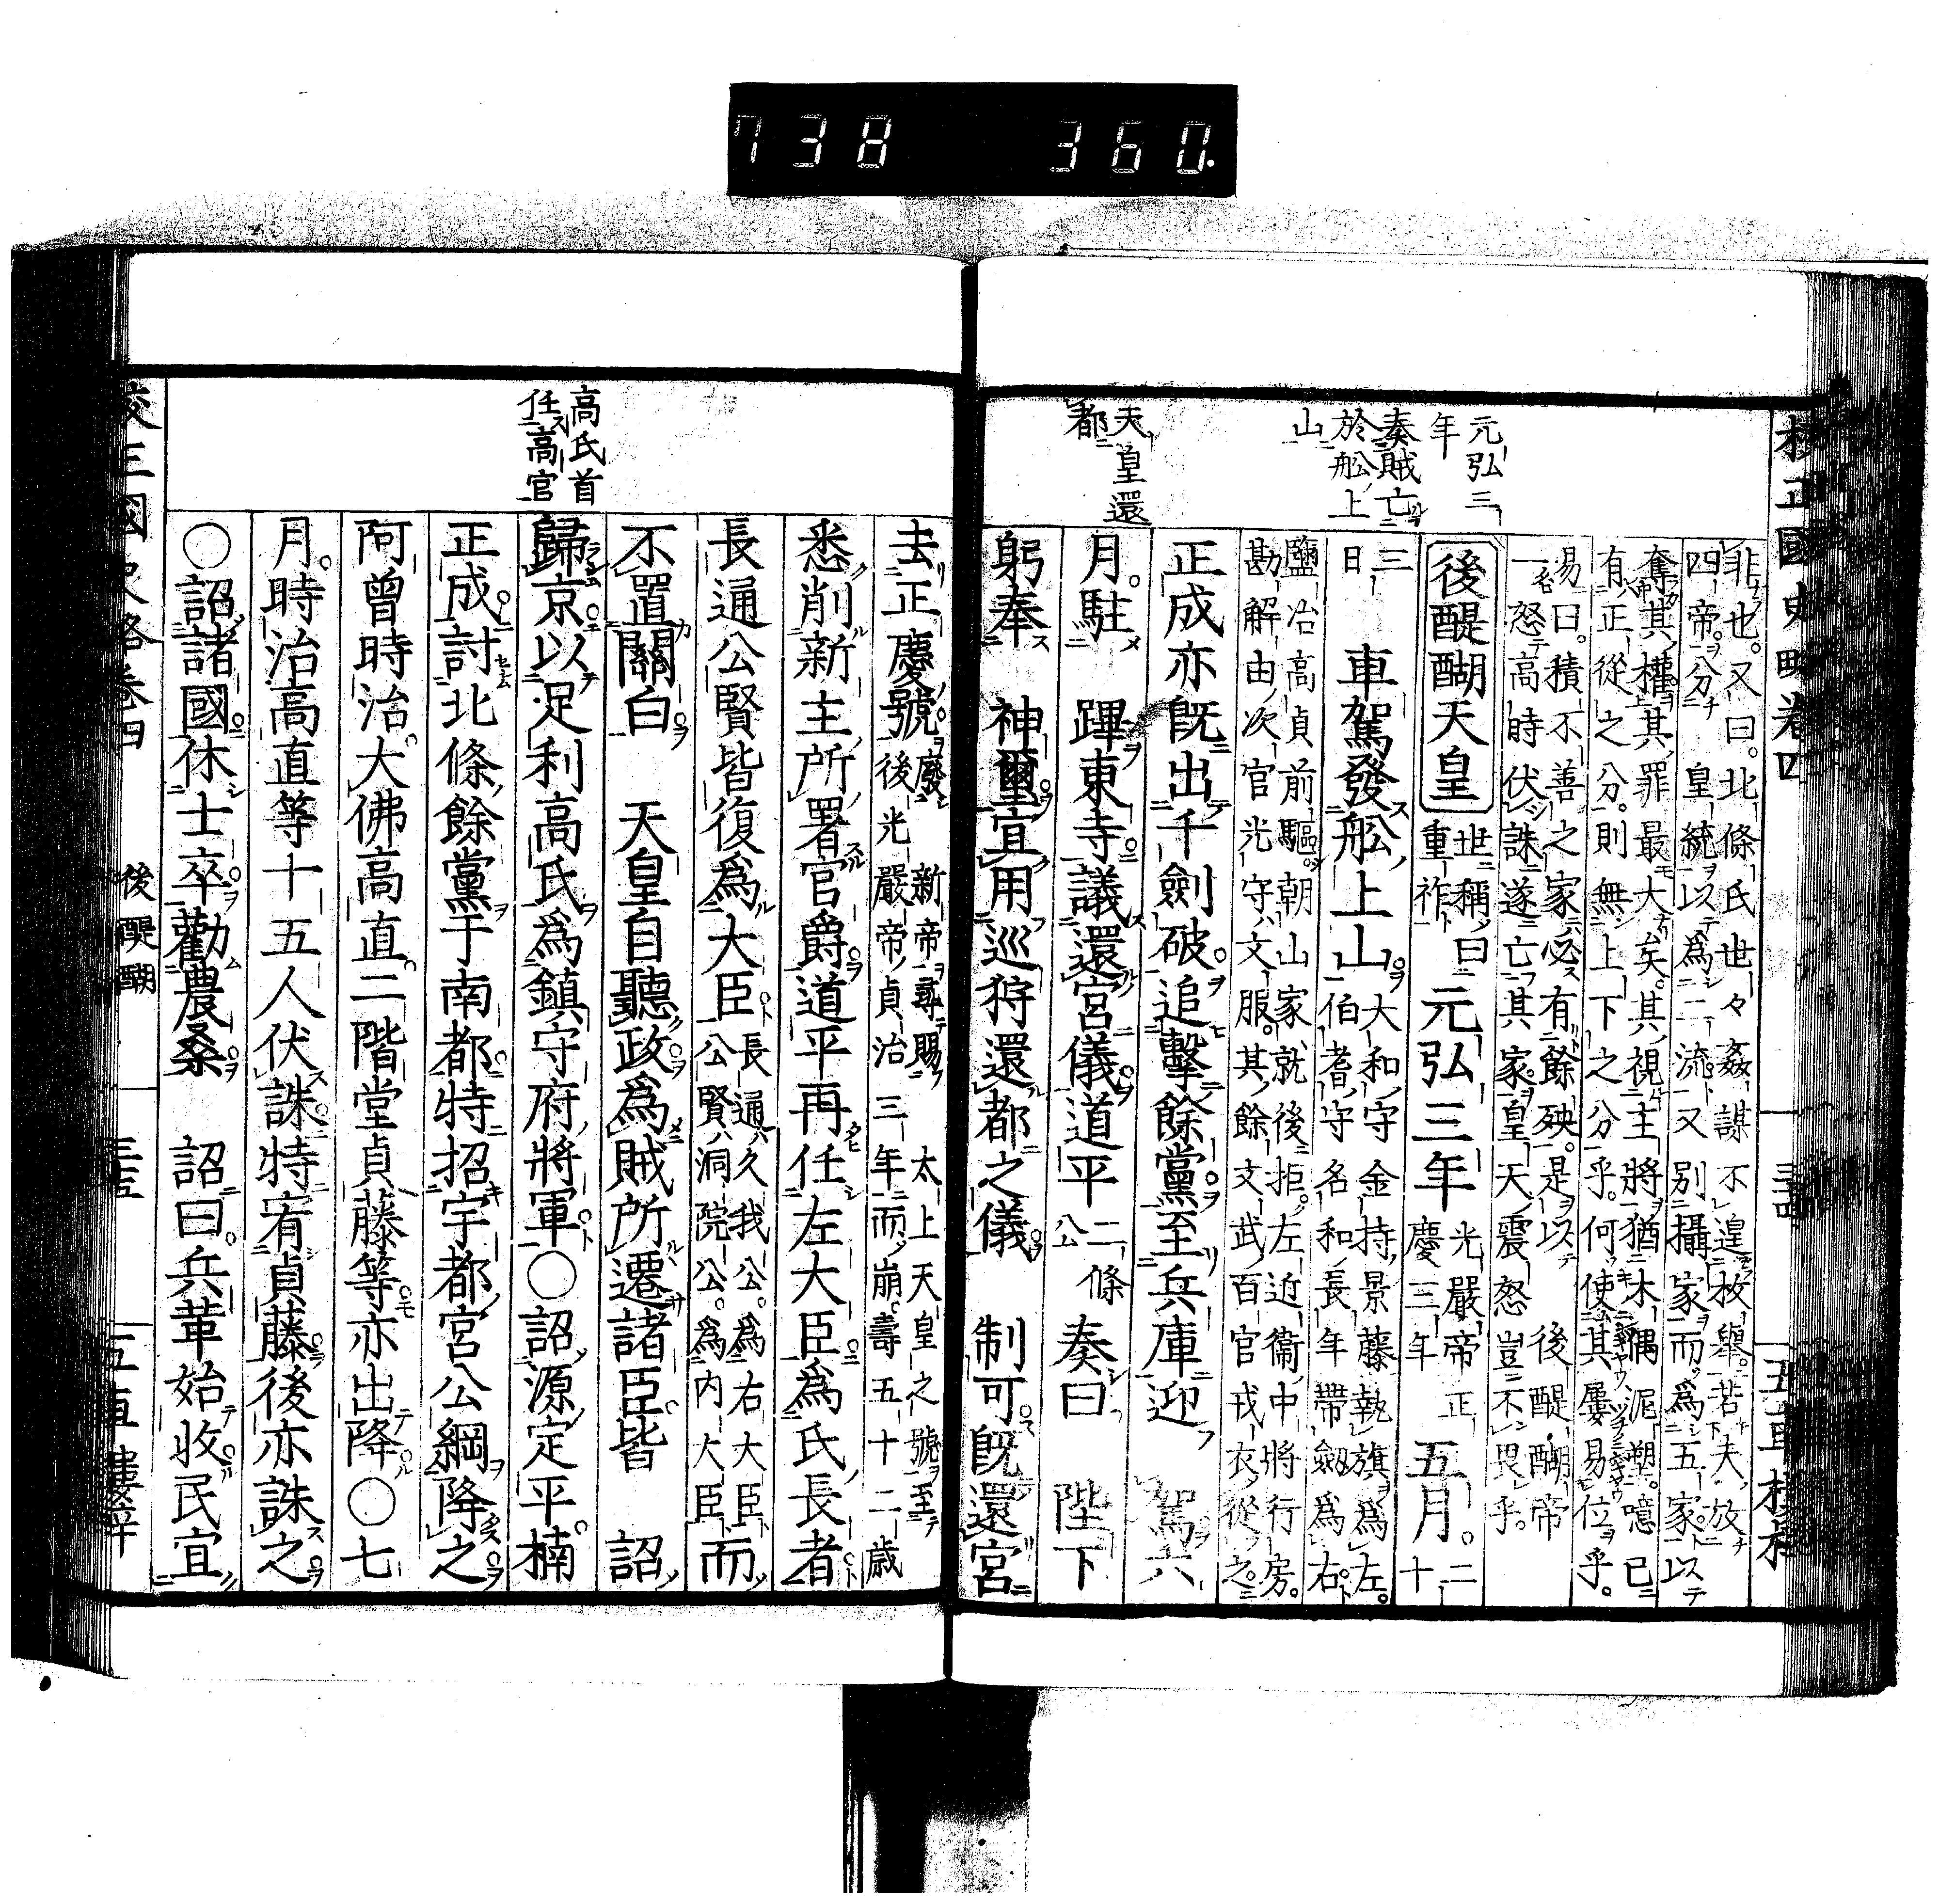 738 360.
校正國史略卷四
非也。又曰。北條氏世々姦謀不遑枚擧。若夫放
四帝。分皇統以爲二流。又別攝家而爲五家。以
奪其權。其罪最大矣。其視主將猶木偶泥塑。噫已
有正從之分。則無上下之分乎。何使其屢易位乎。
易曰。積不善之家必有餘殃。是以後醍醐帝
一怒高時伏誅遂亡其家。皇天震怒豈不畏乎。
元弘三年
後醍醐天皇
世稱曰
重祚
元弘三年
光嚴帝正
慶三年
五月。二
十
三
日
奏賊亡於舩上山
車駕發舩上山
大和守金持景藤執旗爲左。
伯耆守名和長年帶劔爲右。
鹽冶高貞前驅。朝山家就後拒。左近衞中將行房。
勘解由次官光守文服。其餘文武百官戎衣從之。
正成亦既出千劍破。追擊餘黨。至兵庫迎 駕六
天皇還都
月。駐 蹕東寺。議還宮儀。道平
二條
公
奏曰 陛下
躬奉 神璽。宜用巡狩還都之儀 制可。既還宮
去正慶號。
廢新帝尋賜太上天皇之號至
後光嚴帝貞治三年而崩。壽五十二歳
悉削新主所署官爵。道平再任左大臣爲氏長者
長通公賢皆復爲大臣
長通久我公。爲右大臣
公賢洞院公。爲内大臣
而
不置關白 天皇自聽政爲賊所遷諸臣皆 詔
高氏首任高官
歸京。以足利高氏爲鎭守府將軍〇詔源定平楠
正成。討北條餘黨于南都。特招宇都宮公綱降之
阿曾時治。大佛高直。二階堂貞藤等亦出降〇七
月。時治高直等十五人伏誅。特宥貞藤後亦誅之
〇詔諸國。休士卒勸農桑 詔曰。兵革始收民宜
後醍醐